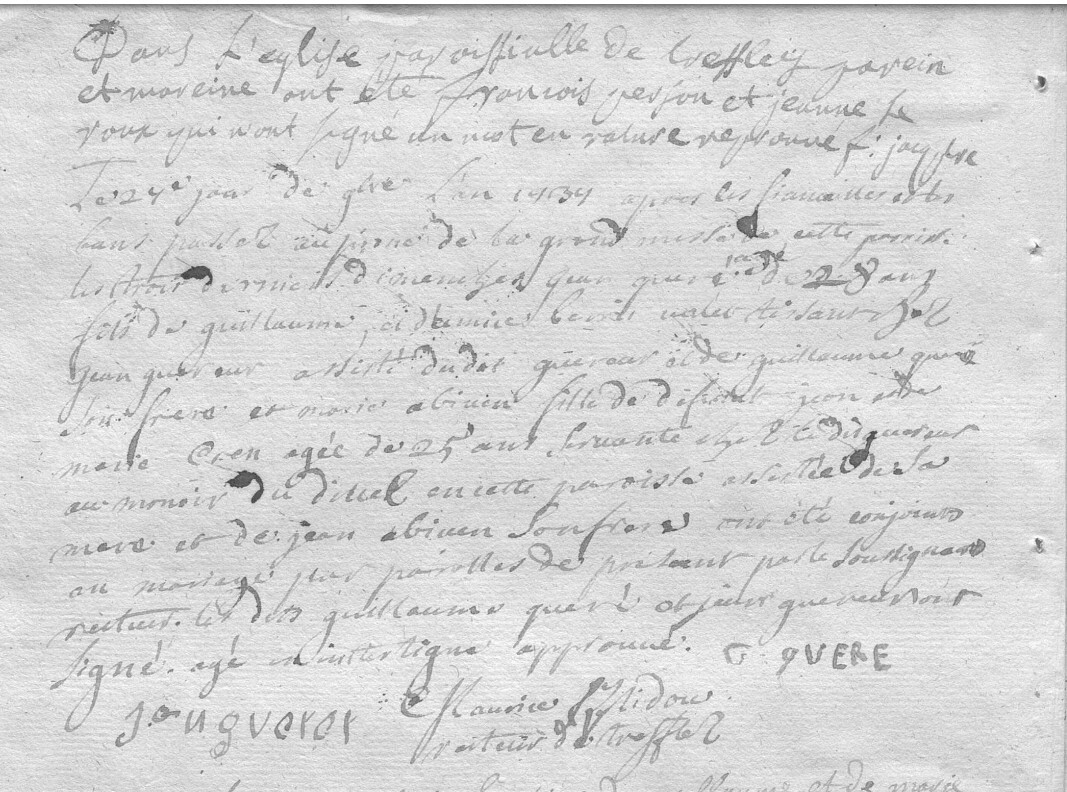 Dans L'eglise paroissialle de treffley parein
et mareine ont eté francois person et jeanne le
roux qui n'ont signé un mot en rature reprouvé f. jaffre
Le 27e jour de 9bre L'an 1737 apres les fiancailles et les
bans passez au prone de la grand messe de cette paroisse
les trois derniers dimenches jean queré agé de 28 ans
fils de guillaume et valet tissant chez
jean quereur assisté dudit quereur et de guillaume queré
son frere et marie abiven fille de defunt jean et de
marie Cren agée de 25 ans servante chez ledit quereur
au manoir du en cette paroisse assistée de sa
mere et de jean abiven son frere ont été conjoints
en mariage par parolles de présent par le soussignant
recteur. les dits guillaume queré et jean quereur ont
signé. agé en interligne approuvé. G QVERE
jean gverer Maurice
recteur de trefflez
guillaume et de marie